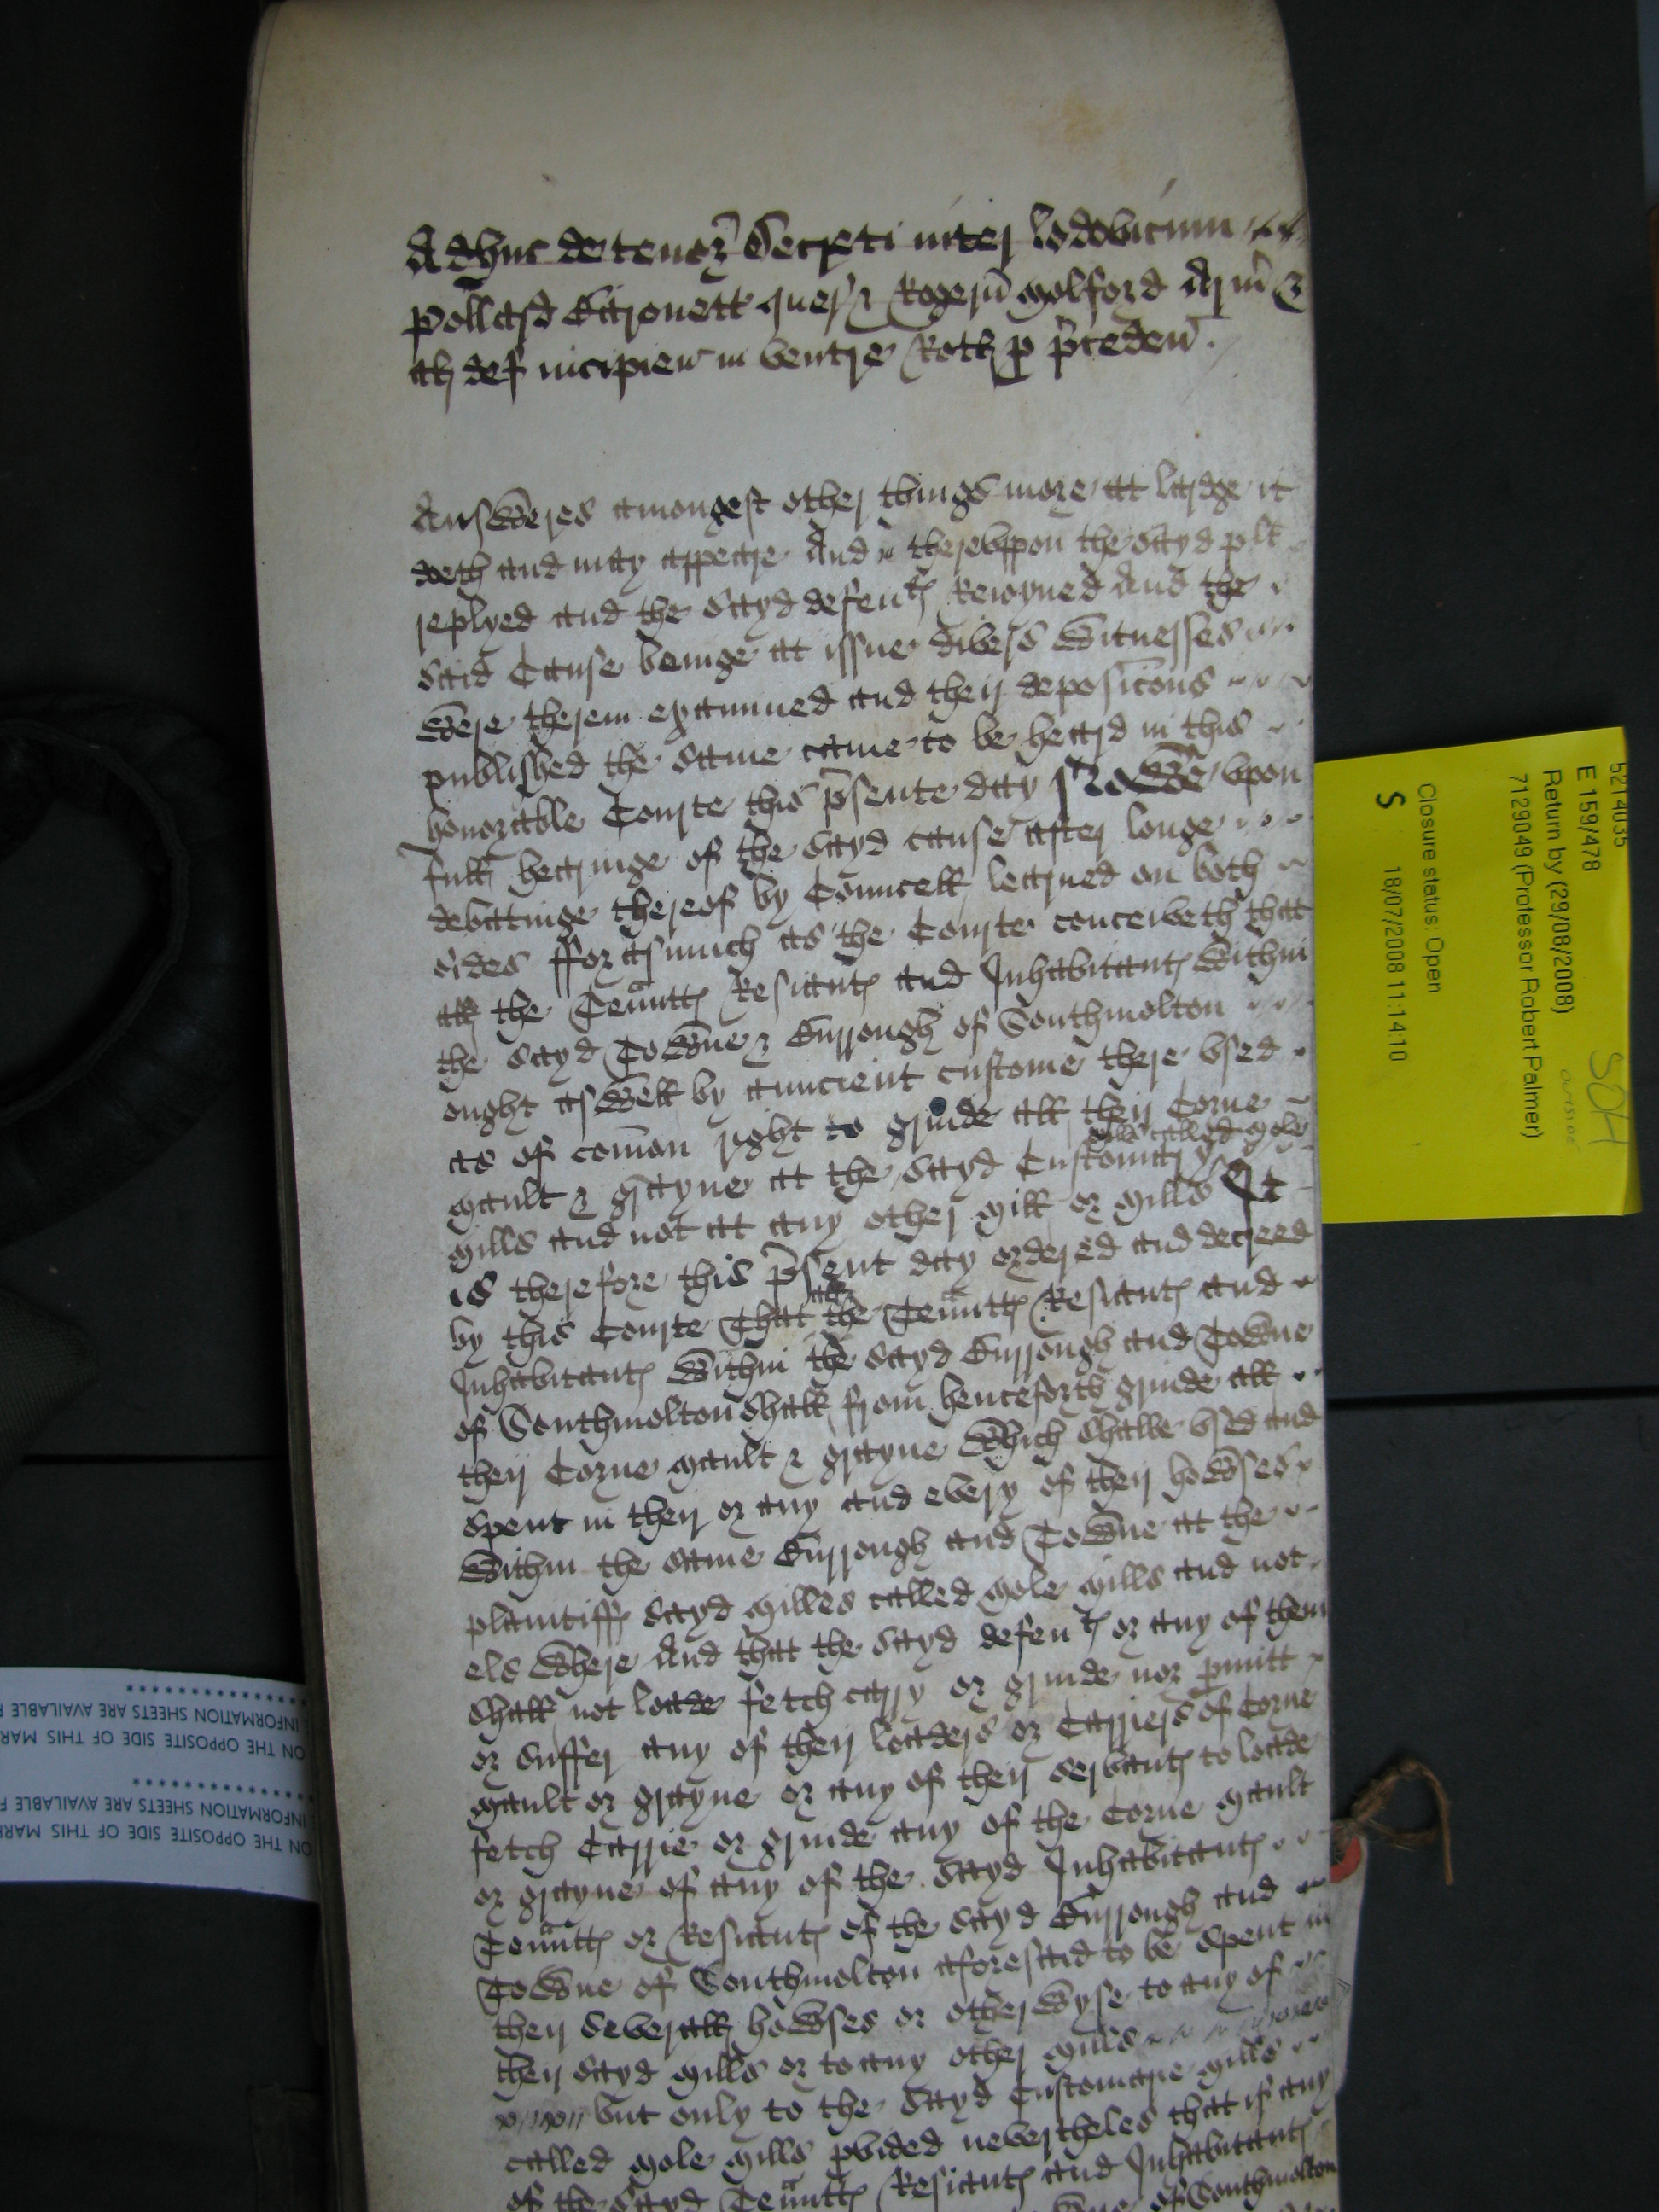 Adhuc de tenor Decreti inter lodovicum
Pollard Baronett quer & Rogerum Molford Arm &
al def incipien in ventre Rotli p preceden.
Answeres amongest other things more att lardge it
doeth and may appeare And therevppon the sayd plt
replyed and the sayd defentes Reioyned And the
said Cause beinge att issue divers Witnesses
were therein examined and their deposicons
published the same came to be heard in this
honorable Courte this psente day Nowe vpon
full hearinge of the sayd cause after longe
debatinge thereof by Councell learned on both
sides fforasmuch as the Courte conceiveth that
all the Tennts Resiants and Inhabitants within
the sayd Towne & Burrough of Southmolton
ought aswell by auncient custome there vsed
as of comon right to grinde all their Corne
Mault & grayne att the sayd Customary
mills called Mole
Mills and not att any other Mill or Mills It
is therefore this psent day ordered and decreed
by this Courte That all the Tennts Resiants and
Inhabitants within the sayd Burrough and Towne
of Southmolton shall from henceforth grinde all
their Corne Mault & grayne which shalbe vsed and
spent in their or any and every of their howses
within the same Burrough and Towne att the
plaintiffs sayd Milles called Mole Mills and not
els where And that the sayd defents or any of them
shall not loade fetch cary or grinde nor pmitt
or suffer any of their loaders or Carriers of Corne
Mault or grayne or any of their servants to loade
fetch Carrie or grinde any of the Corne Mault
or grayne of any of the sayd Inhabitants
Tennts or Resiants of the sayd Burrough and
Towne of Southmolton aforesaid to be spent in
their severall howses or otherwyse to any of
their sayd Mills or to any other Mills
but only to the sayd Customarie Mills
called Mole Mills pvided neverthelesse that if any
of the sayd Tennts Resiants and Inhabitants
of Southmolton
5214035
E 159/478
Return by (29/08/2008)
7129049 (Professor Robert Palmer)
Closure status: Open
S 18/07/2008 11:14:10
INFORMATION SHEETS ARE AVAILABLE
ON THE OPPOSITE SIDE OF THIS MAR
INFORMATION SHEETS ARE AVAILABLE
ON THE OPPOSITE SIDE OF THIS MAR